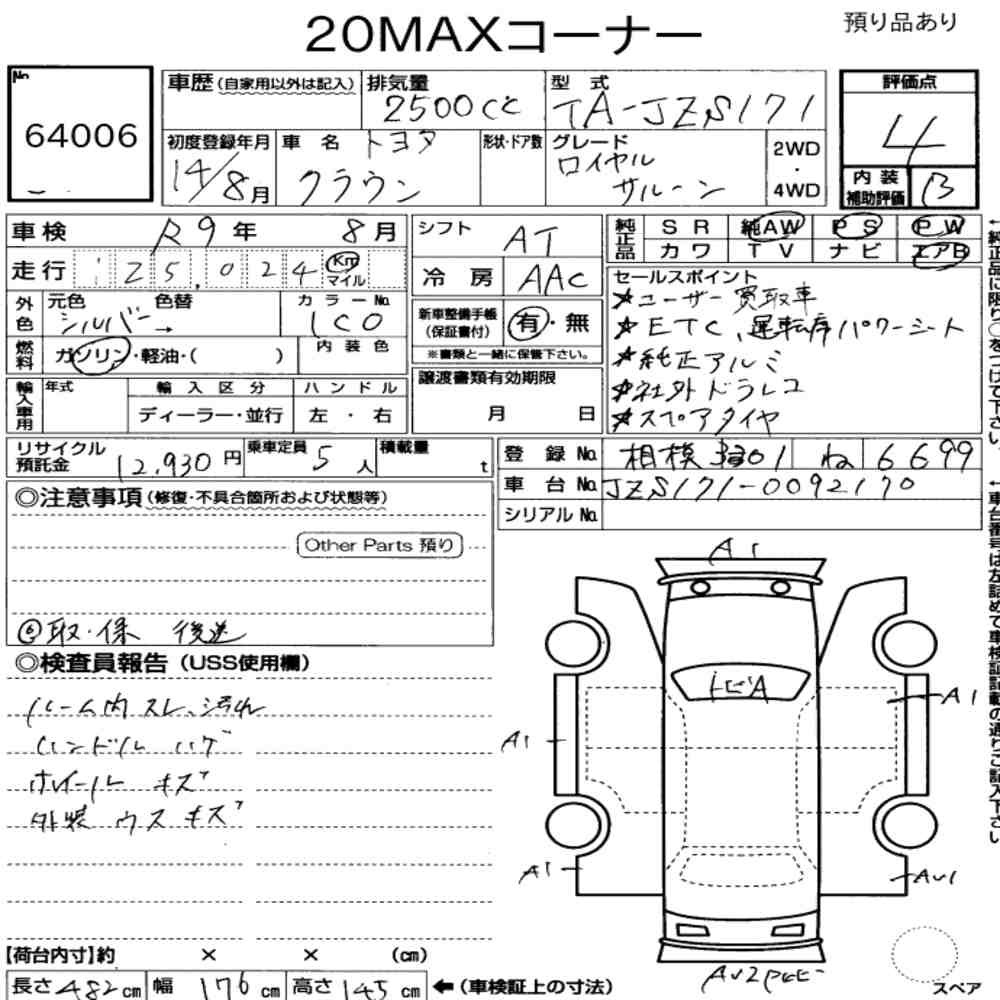 20MAXコーナー
預り品あり
No.
64006
車歴(自家用以外は記入)
排気量
2500cc
型式
TA-JZS171
評価点
4
初度登録年月
14/8月
車名
トヨタ
クラウン
形状・ドア数
グレード
ロイヤル
サルーン
2WD
・
4WD
内装
補助評価
B
車検
R9年 8月
走行
125,024
Km
マイル
外色
元色
シルバー→
色替
カラーNo.
1C0
燃料
ガソリン・軽油・( )
内装色
輸入車用
年式
輸入区分
ディーラー・並行
ハンドル
左・右
シフト
AT
冷房
AAC
新車整備手帳
(保証書付)
有・無
※書類と一緒に保管下さい。
譲渡書類有効期限
月 日
純正品
SR 純AW PS PW
カワ TV ナビ エアB
セールスポイント
★ユーザー買取車
★ETC、運転席パワーシート
★純正アルミ
★社外ドラレコ
★スペアタイヤ
←純正品に限り○をつけて下さい。
リサイクル
預託金
12,930円
乗車定員
5人
積載量
t
登録No.
相模 301 ね 6699
車台No.
JZS171-0092170
シリアルNo.
←車台番号は左詰めで車検証記載の通りご記入下さい。
◎注意事項(修復・不具合箇所および状態等)
Other Parts 預り
⑥取・保 後送
◎検査員報告(USS使用欄)
ルーム内スレ、汚れ
ハンドル ハゲ
ホイール キズ
外装 ウスキズ
A1
トビA
A1
A1
A1
AU1
スペア
【荷台内寸】約 × × (cm)
長さ 482 cm 幅 176 cm 高さ 145 cm ←(車検証上の寸法)